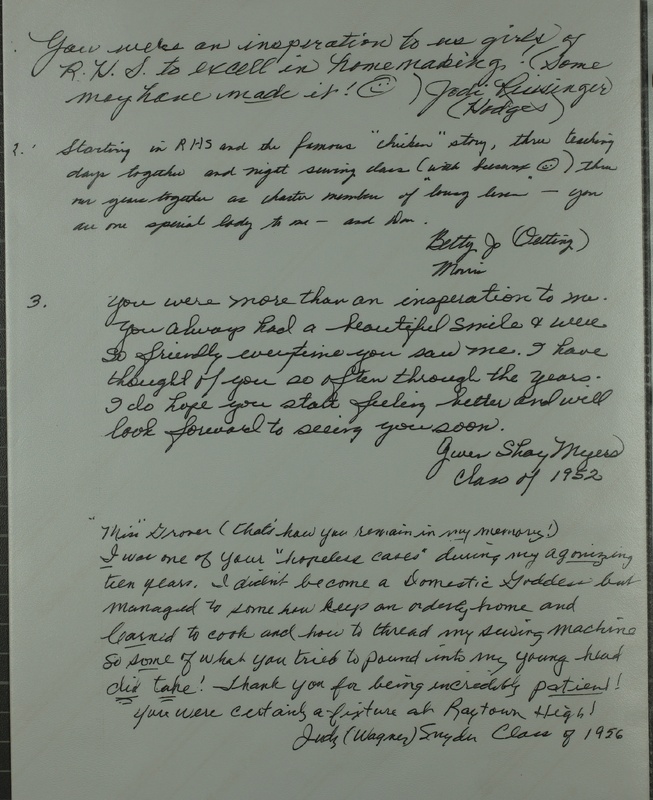 You were an insperation to us girls of
R.H.S. to excell in homemaking. (Some
may have made it! ☺) Jodi Reisinger
(Hodges)
2. Starting in RHS and the famous "chicken" story, three teaching
days together and night sewing class (with ☺) then
our years together as charter member of "" — you
are one special lady to me — and Don.
Betty Jo (Oetting)
Morris
3. You were more than an insperation to me.
You always had a beautiful smile & were
so friendly everytime you saw me. I have
thought of you so often through the years.
I do hope you start feeling better and will
look forward to seeing you soon.
Gwen Shay Myers
Class of 1952
"Miss" Grover (that's how you remain in my memory!)
I was one of your "hopeless cases" during my agonizing
teen years. I didn't become a Domestic Goddess but
managed to some how keep an orderly home and
learned to cook and how to thread my sewing machine
so some of what you tried to pound into my young head
did take! Thank you for being incredibly patient!
You were certainly a fixture at Raytown High!
Judy (Wagner) Snyder Class of 1956